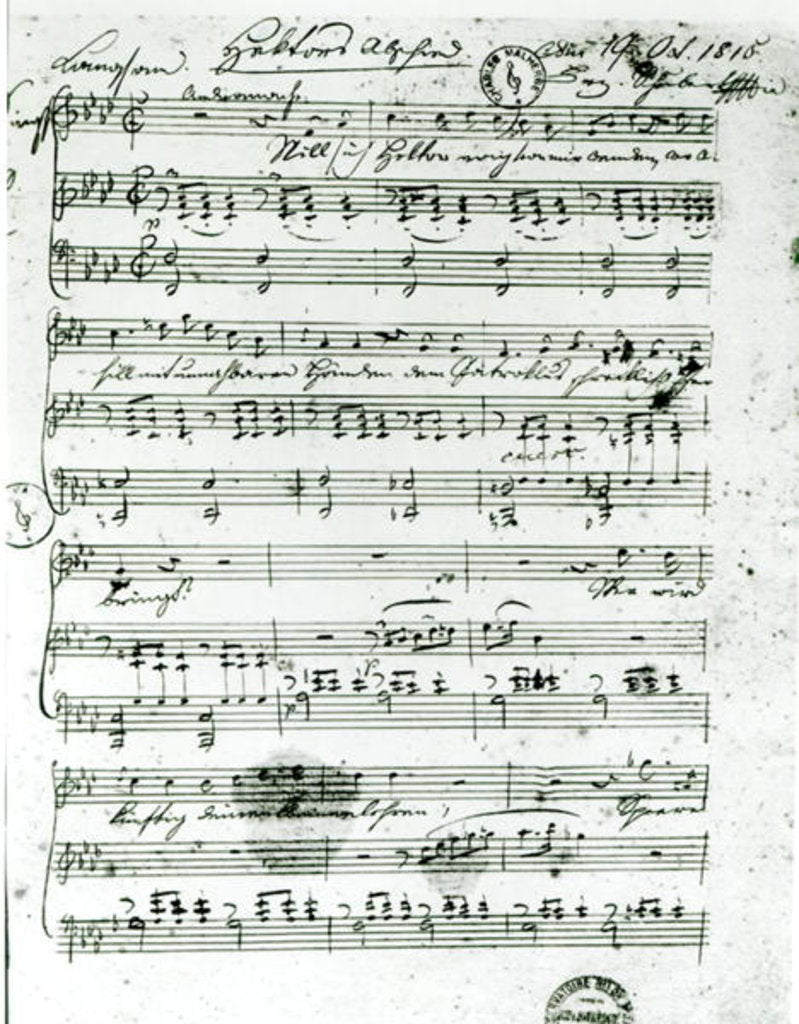 Langsam. Hektors Abschied. den 19. Oct. 1815
CHARLES MALHERBE
Andromache.
Will sich Hektor ewig von mir wenden, wo A-
chill mit unnahbaren Händen dem Patroklus schrecklich Opfer
bringt?
Wer wird
künftig deinen Kleinen lehren,
Speere